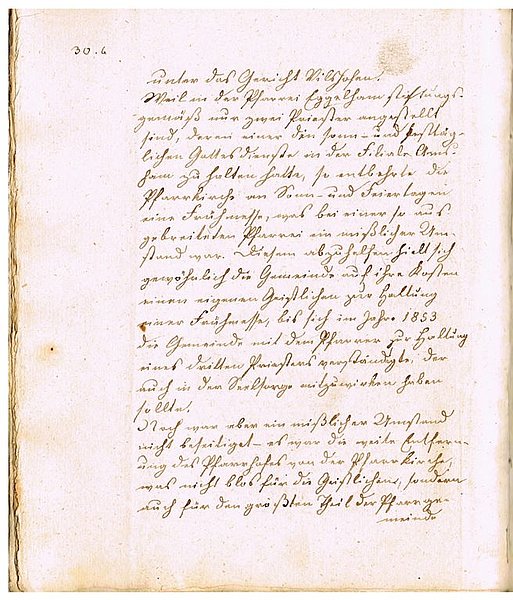 30. b
unter das Gericht Vilshofen.
Weil in der Pfarrei Eggelham stiftungs-
gemäß nur zwei Priester angestellt
sind, deren einer den sonn- und festtäg-
lichen Gottesdienste in der Filiale Ams-
ham zu halten hatte, so entbehrte die
Pfarrkirche an Sonn- und Feiertagen
eine Frühmesse, was bei einer so aus
gebreiteten Pfarrei ein mißlicher Um-
stand war. Diesem abzuhelfen hielt sich
gewöhnlich die Gemeinde auf ihre Kosten
einen eigenen Geistlichen zur Haltung
einer Frühmesse, bis sich im Jahre 1853
die Gemeinde mit dem Pfarrer zur Haltung
eines dritten Priesters verständigte, der
auch in der Seelsorge mitzuwirken haben
sollte.
Noch war aber ein mißlicher Umstand
nicht beseitiget – es war die weite Entfern-
ung des Pfarrhofes von der Pfarrkirche,
was nicht blos für die Geistlichen, sondern
auch für den größten Theil der Pfarrge-
meinde